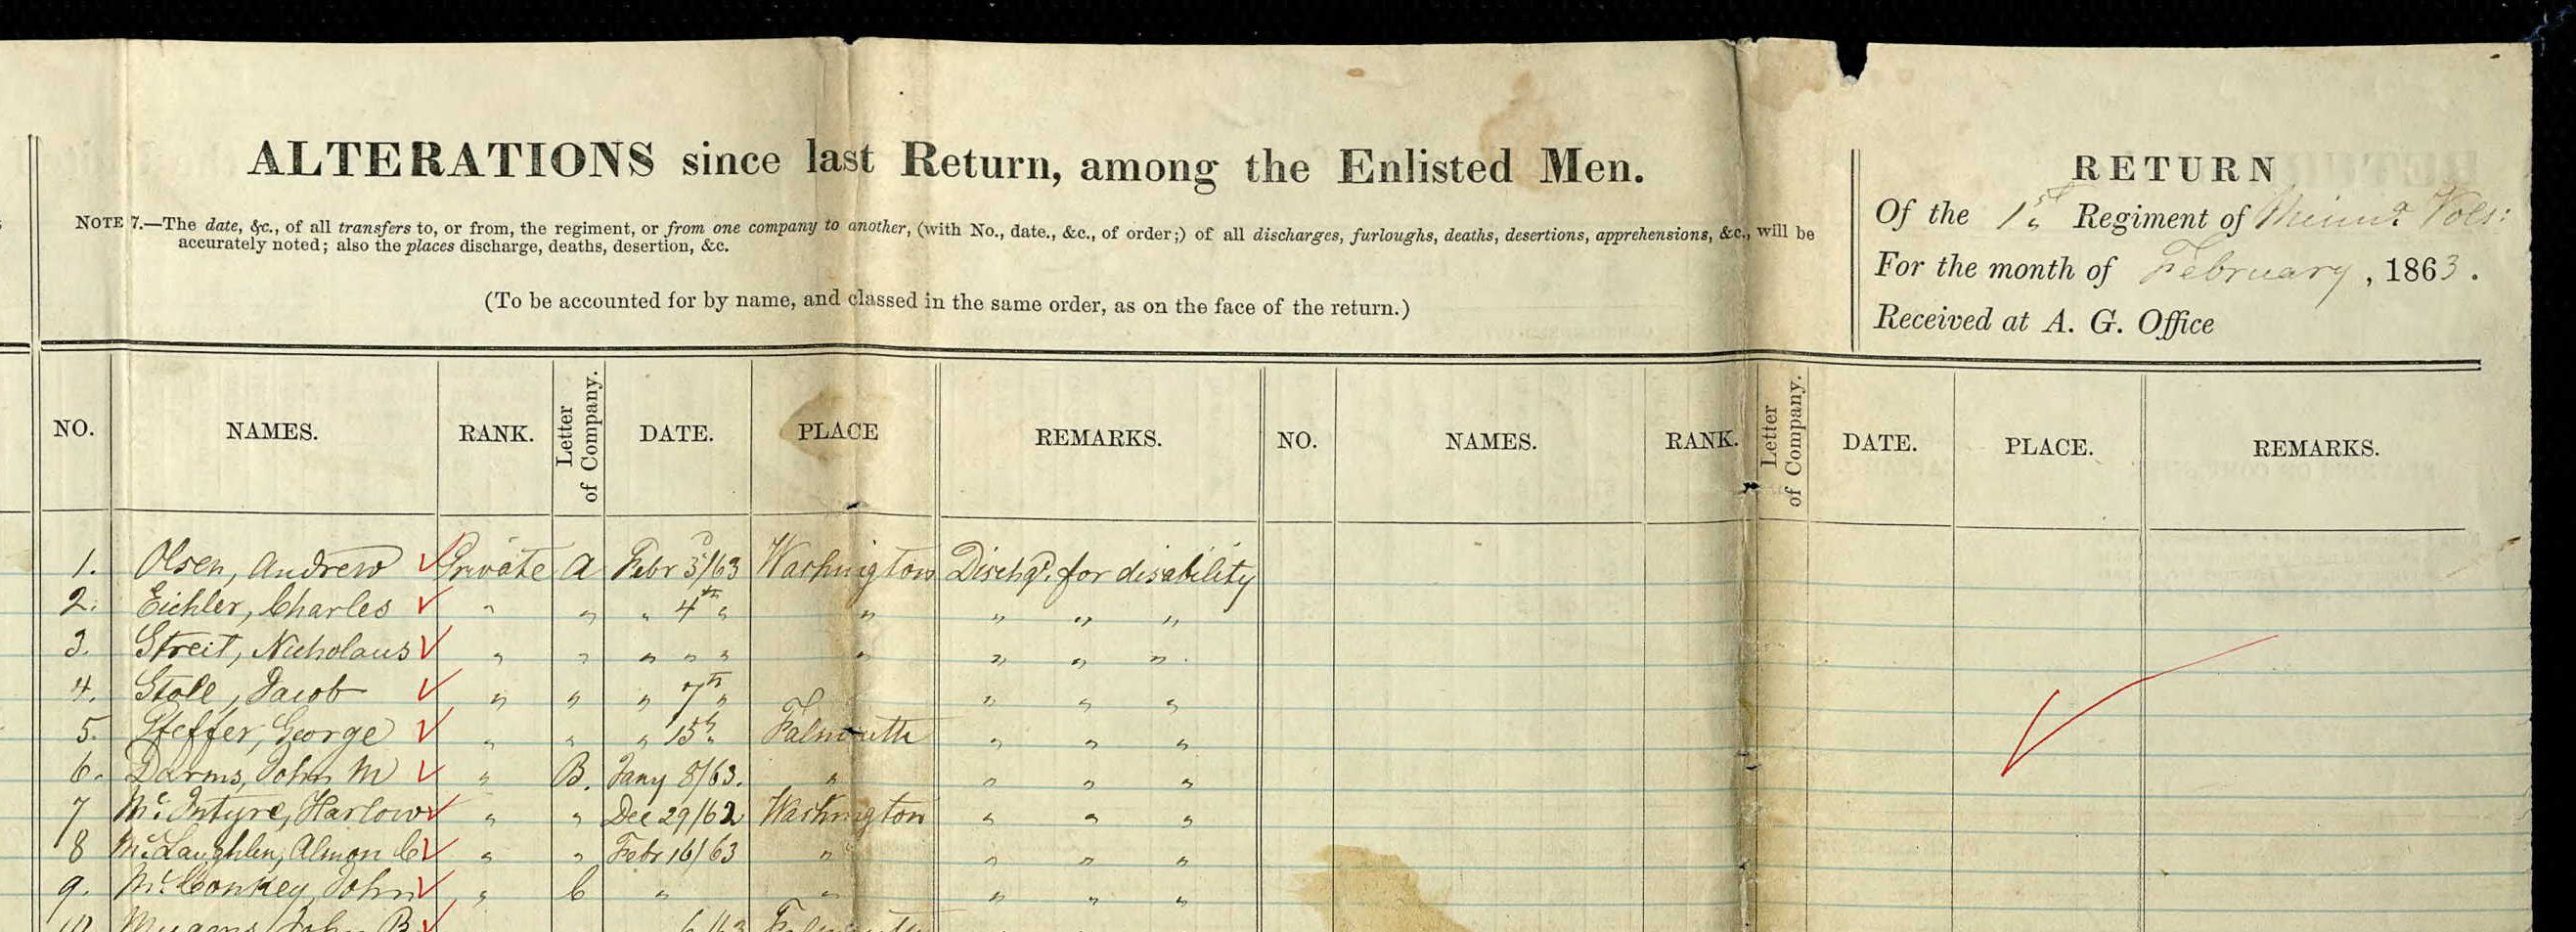 ALTERATIONS since last Return, among the Enlisted Men.
NOTE 7.—The date, &c., of all transfers to, or from, the regiment, or from one company to another, (with No., date., &c., of order;) of all discharges, furloughs, deaths, desertions, apprehensions, &c., will be
accurately noted; also the places discharge, deaths, desertion, &c.
(To be accounted for by name, and classed in the same order, as on the face of the return.)
RETURN
Of the 1st Regiment of Minna. Vols:
For the month of February, 1863.
Received at A. G. Office
NO. NAMES. RANK. Letter of Company. DATE. PLACE REMARKS. NO. NAMES. RANK. Letter of Company. DATE. PLACE. REMARKS.
1. Olsen, Andrew Private A Febr 3d/63 Washington Dischgd. for disability
2. Eichler, Charles " " " 4th " " " " "
3. Streit, Nicholaus " " " " " " " " "
4. Stoll, Jacob " " " 7th " " " "
5. Pfeffer, George " " " 15th " Falmouth " " "
6. Darms, John M " B. Jany 8/63. " " " "
7 McIntyre, Harlow " " Dec 29/62 Washington " " "
8 McLaughlen, Almon C " " Febr 16/63 " " " "
9. McConkey, John " C " " " " "
10 John B 6/63 Falmouth